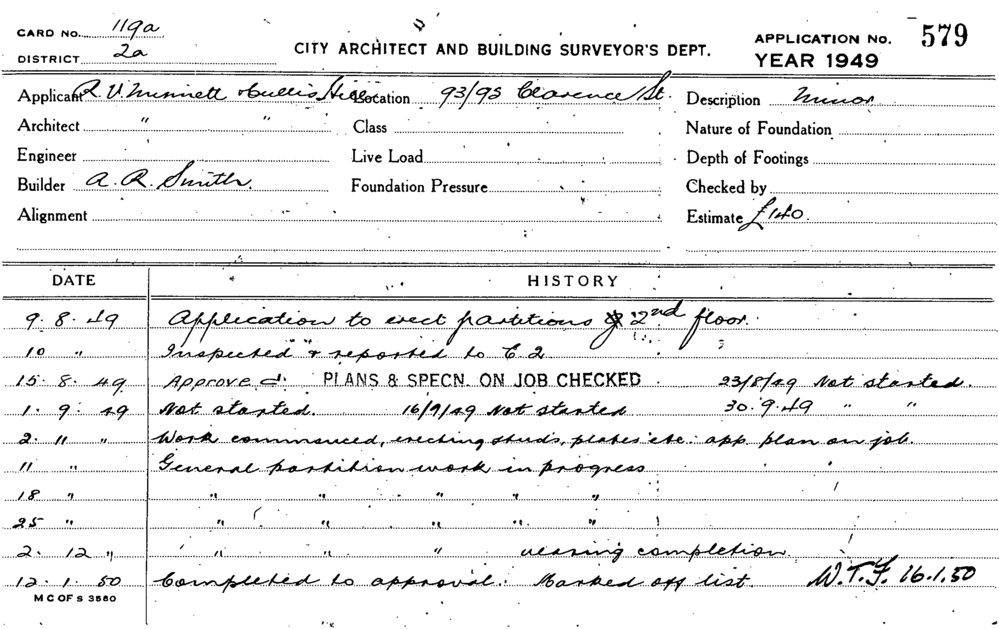 CARD No. 119a
DISTRICT 2a
CITY ARCHITECT AND BUILDING SURVEYOR'S DEPT.
APPLICATION No. 579
YEAR 1949
Applicant R. V. Minnett Location 93/95 Clarence St. Description Minor
Architect " " Class Nature of Foundation
Engineer Live Load Depth of Footings
Builder A. R. Smith. Foundation Pressure Checked by
Alignment Estimate £140
DATE HISTORY
9. 8. 49 Application to erect partitions 2nd floor.
10 " Inspected & reported to C. 2
15. 8. 49 Approved. PLANS & SPECN. ON JOB CHECKED 23/8/49 Not started.
1. 9. 49 Not started. 16/9/49 Not started 30.9.49 " "
2. 11 " Work commenced, erecting studs, plates etc. app. plan on job.
11 " General partition work in progress
18 " " " " " "
25 " " " " " "
2. 12 " " " " nearing completion
12. 1. 50 Completed to approval. Marked off list. W.T.F. 16.1.50
M C OF S 3560